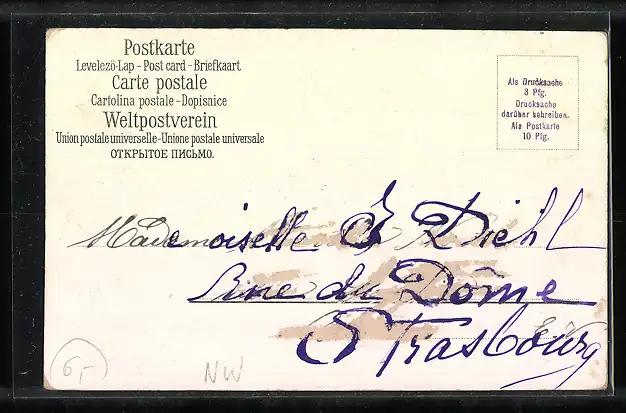 Postkarte
Levelező-Lap - Post card - Briefkaart
Carte postale
Cartolina postale - Dopisnice
Weltpostverein
Union postale universelle - Unione postale universale
ОТКРЫТОЕ ПИСЬМО.
Als Drucksache
3 Pfg.
Drucksache
darüber schreiben.
Als Postkarte
10 Pfg.
Mademoiselle E Diehl
rue du Dôme
Strasbourg
6,-
NW